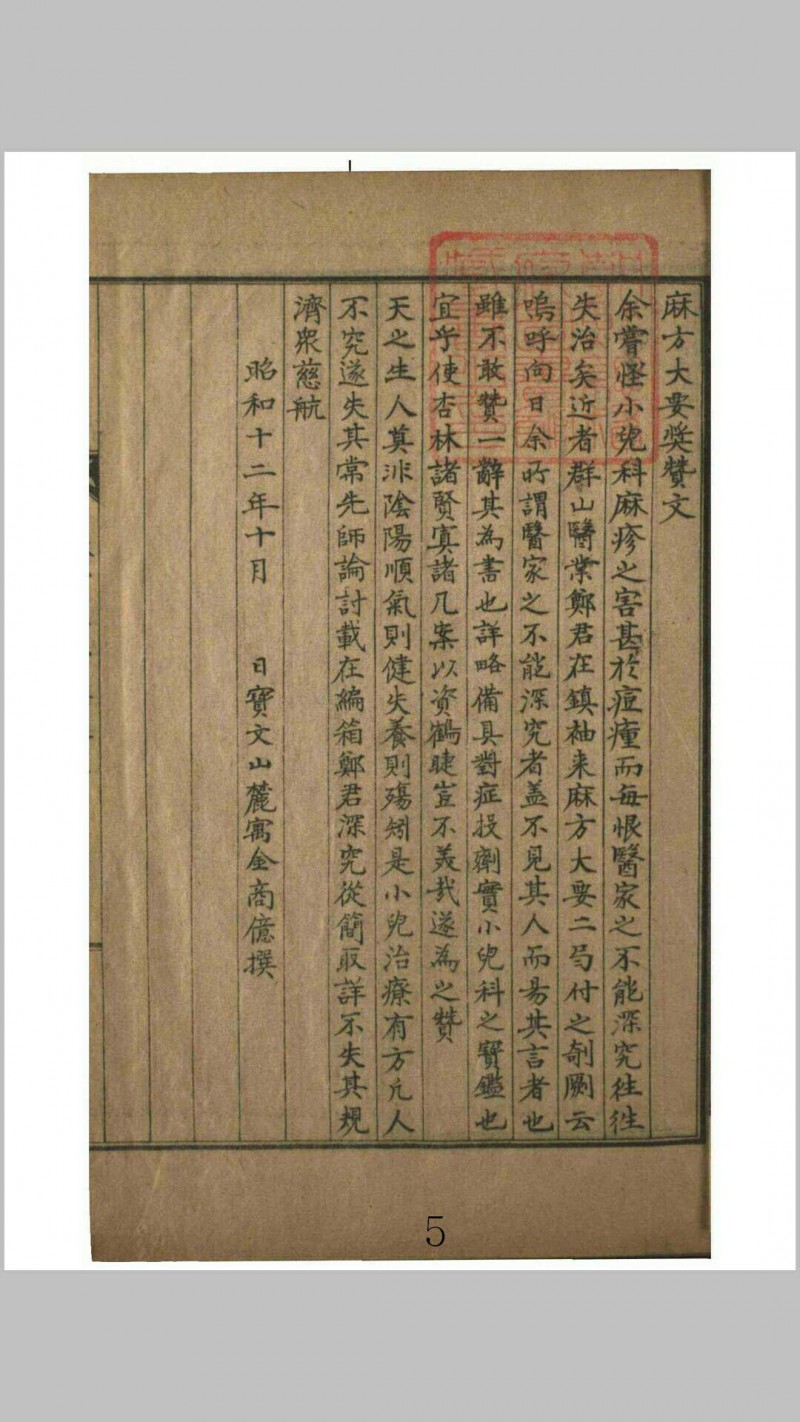 麻方大要奬贊文
余嘗怪小兒科麻疹之害甚於痘瘇而每恨醫家之不能深究往往
失治矣近者群山醫業鄭君在鎮袖来麻方大要二局付之剞劂云
嗚呼向日余所謂醫家之不能深究者盖不見其人而易其言者也
雖不敢贊一辭其為書也詳略備具對症投劑實小兒科之寶鑑也
宜乎使杏林諸賢寘諸几案以資鶴睫豈不羙哉遂為之贊
天之生人莫非陰陽順氣則健失養則殤矧是小兒治療有方凢人
不究遂失其常先師論討載在編箱鄭君深究從簡取詳不失其規
濟衆慈航
昭和十二年十月　日寶文山麓寓金商億撰
5